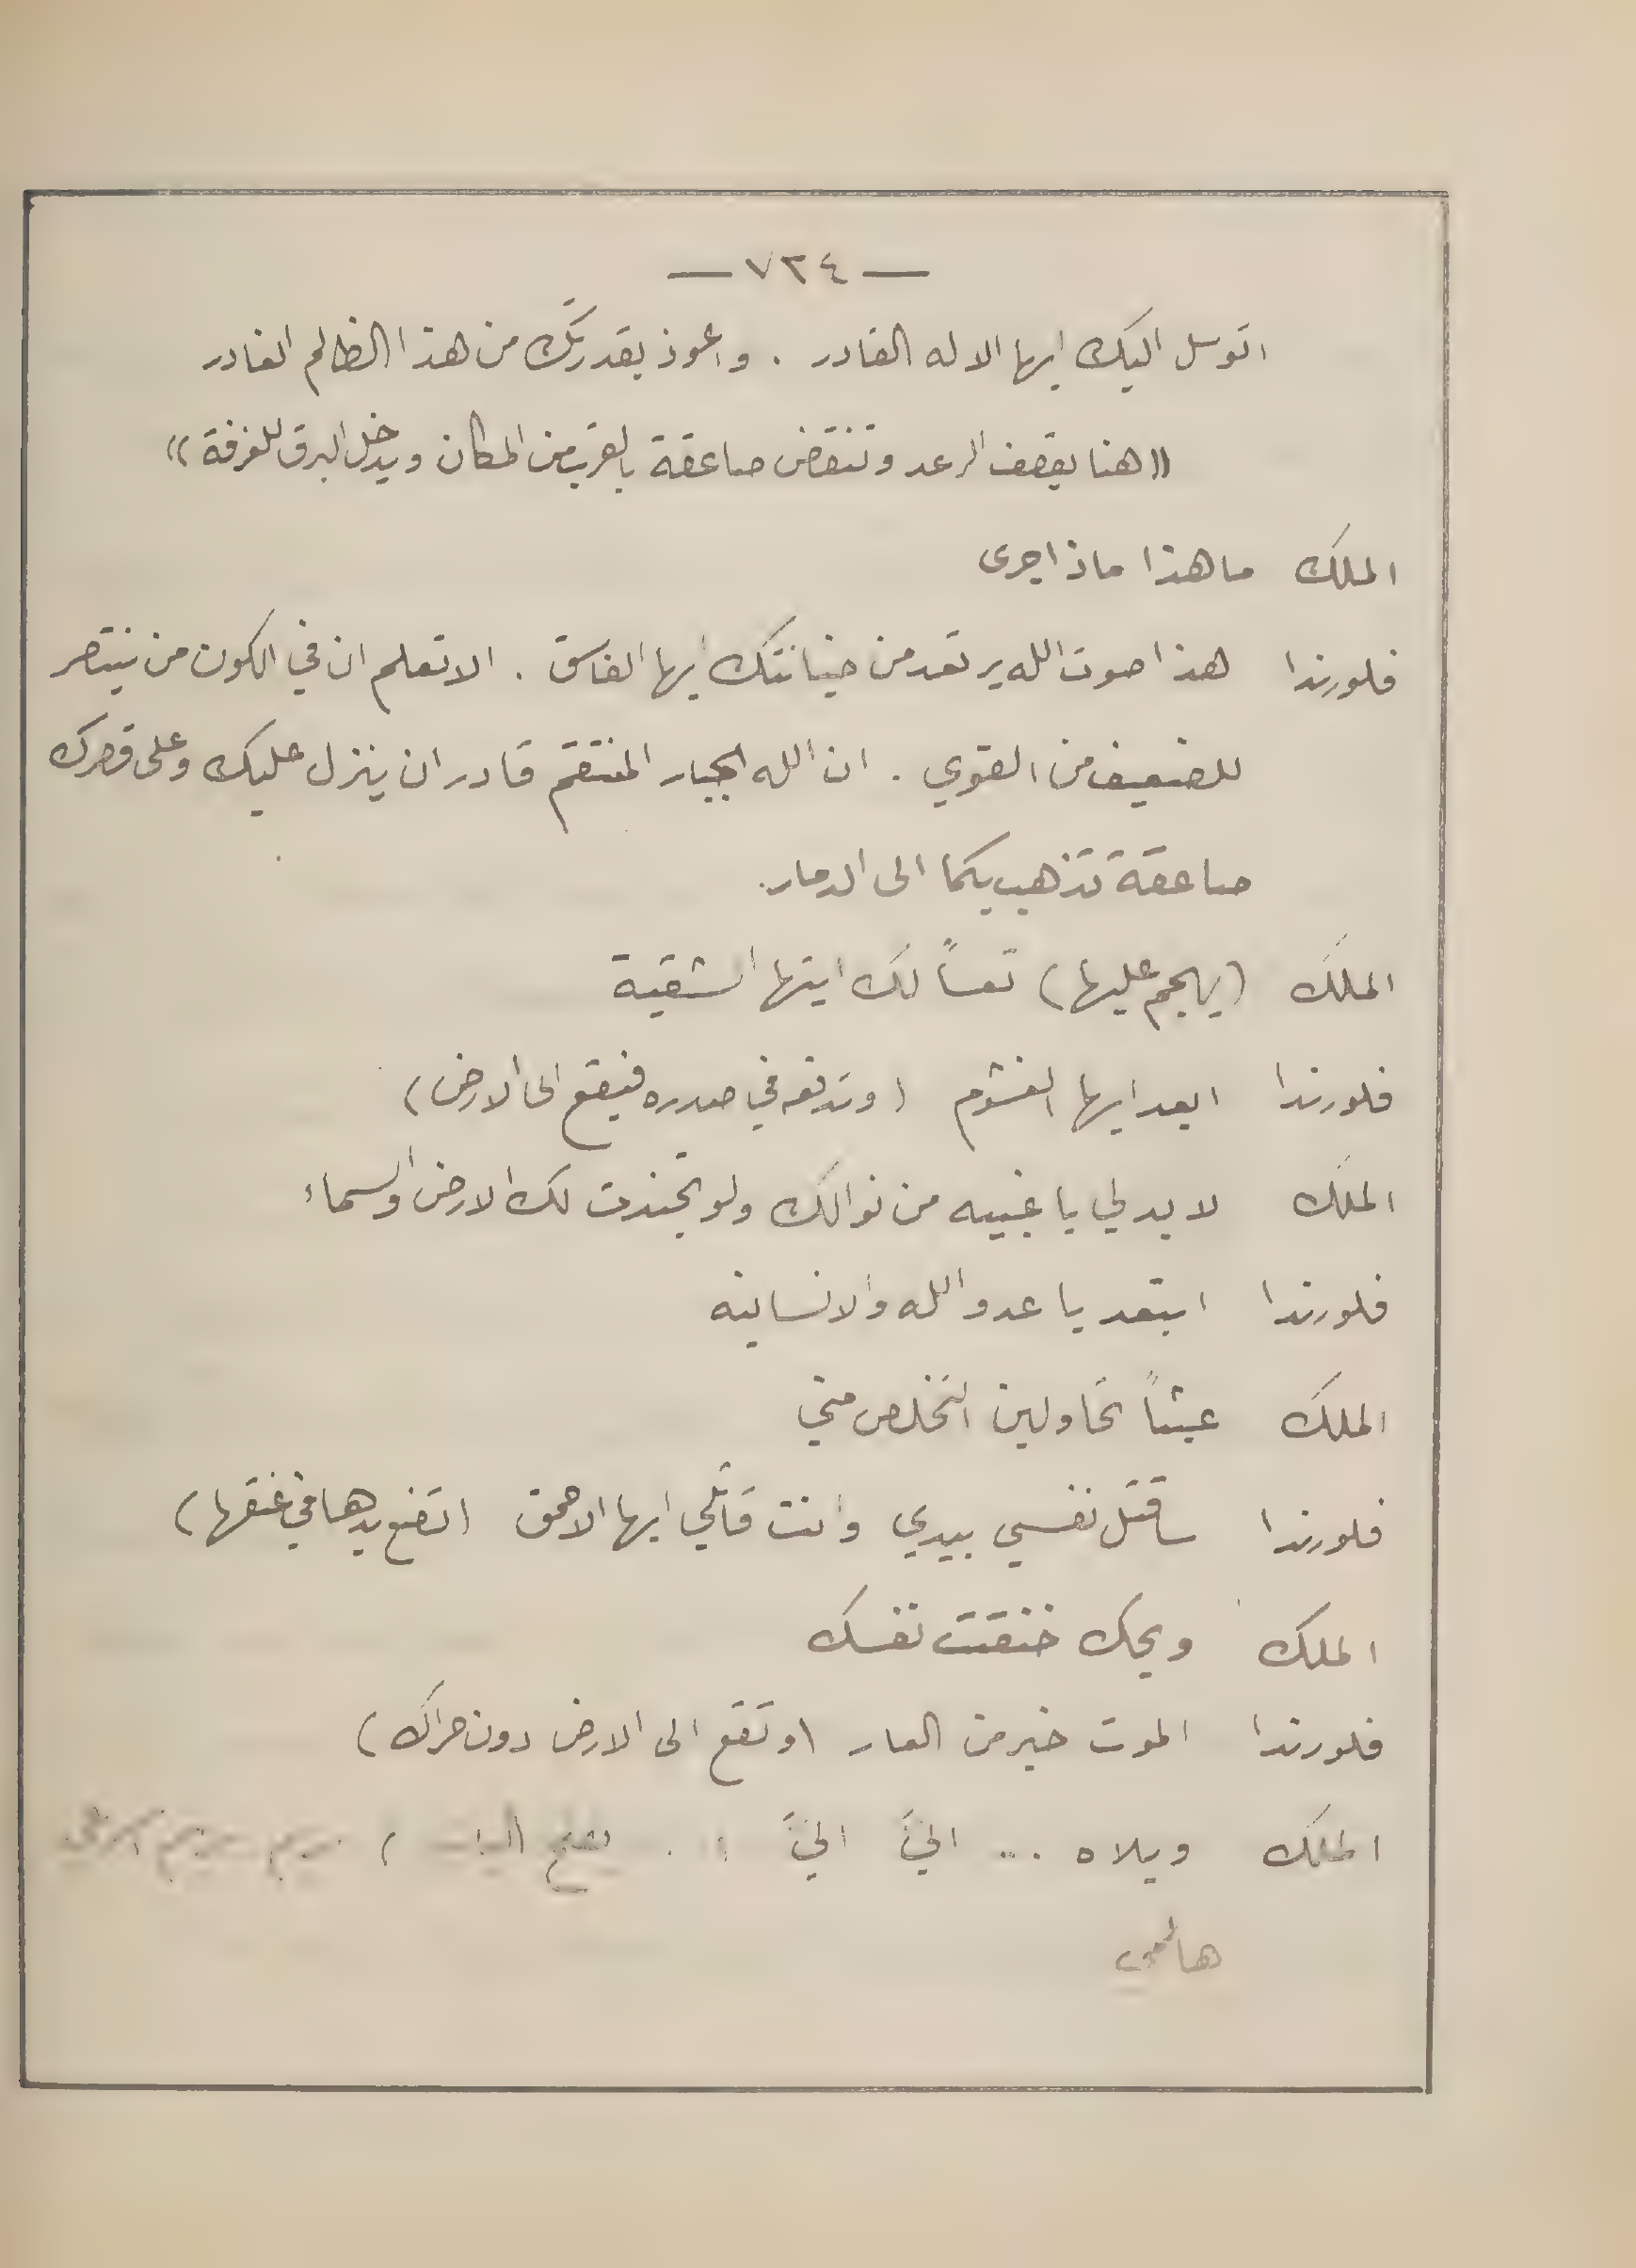 — ٧٣٤ —
اتوسل اليك ايها الاله القادر . واعوذ بقدرتك من هذا الظالم الغادر
((هنا يقصف الرعد وتنقض صاعقة بالقرب من المكان ويدخل البرق للغرفة))
الملك ما هذا ماذا جرى
فلورندا هذا صوت الله يرتعد من خيانتك ايها الفاسق . الا تعلم ان في الكون من ينتصر
للضعيف من القوي . ان الله الجبار المنتقم قادر ان ينزل عليك وعلى قصرك
صاعقة تذهب بكما الى الدمار.
الملك (يهجم عليها) تعساً لك ايتها الشقية
فلورندا ابعد ايها الغشوم (وتدفعه في صدره فيقع الى الارض)
الملك لا بد لي يا غبيه من نوالك ولو تجندت لك الارض والسماء
فلورندا ابتعد يا عدو الله والانسانيه
الملك عبثاً تحاولين التخلص مني
فلورندا ساقتل نفسي بيدي وانت قاتلي ايها الاحمق (تضع يدها في عنقها)
الملك ويحك خنقت نفسك
فلورندا الموت خير من العار (وتقع الى الارض دون حراك)
الملك ويلاه ... اليَّ اليَّ